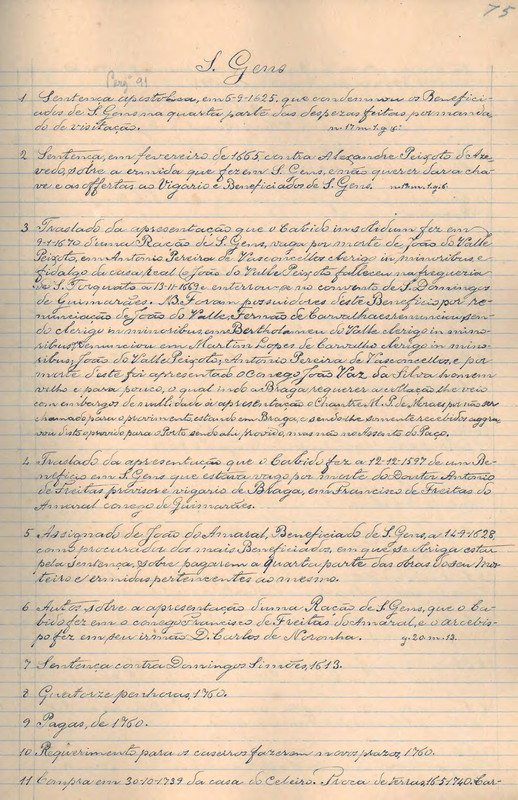 75
S. Gens
1 Sentença apostolica, em 5-9-1625, que condemnou os Benefici-
ados de S. Gens na quarta parte das despezas feitas por manda-
do de visitação. n. 17 m. 1. g. 8.
2 Sentença, em fevereiro de 1665, contra Alexandre Peixoto d'Aze-
vedo, sobre a ermida que fez em S. Gens, e não querer dar a cha-
ve e as offertas ao Vigario e Beneficiados de S. Gens.
3 Traslado da apresentação que o Cabido in solidum fez em
9-1-1670 d'uma Ração de S. Gens, vaga por morte de João do Valle
Peixoto, em Antonio Pereira de Vasconcellos clerigo in minoribus e
fidalgo da casa real (o João do Valle Peixoto falleceu na freguezia
de S. Torquato a 13-11-1669 e enterrou-se no convento de S. Domingos
de Guimarães. NB. Foram possuidores deste Beneficio por re-
nunciação de João do Valle, Fernão de Carvalhaes renunciou sen-
do clerigo in minoribus em Bertholameu do Valle clerigo in mino-
ribus; renunciou em Martim Lopes de Carvalho clerigo in mino-
ribus; João do Valle Peixoto; Antonio Pereira de Vasconcellos, e por
morte deste foi apresentado o Conego João Vaz da Silva homem
velho e para pouco, o qual indo a Braga requerer a collação lhe veio
com embargos de nullidade á apresentação o Chantre M. P. de Moraes por não ser
chamado para o provimento estando em Braga; e sendo-lhe somente recebidos aggra-
vou disto o provido para o Porto sendo ahi provido, mas não no Assento do Paço.
4 Traslado da apresentação que o Cabido fez a 12-12-1597 de um Be-
neficio em S. Gens que estava vago por morte do Doutor Antonio
de Freitas provisor e vigario de Braga, em Francisco de Freitas do
Amaral conego de Guimarães.
5 Assignado de João do Amaral, Beneficiado de S. Gens, a 14-9-1628,
como procurador dos mais Beneficiados, em que se obriga estar
pela sentença, sobre pagarem a quarta parte das obras do seu mos-
teiro e ermidas pertencentes ao mesmo.
6 Autos, sobre a apresentação d'uma Ração de S. Gens, que o Ca-
bido fez em o conego Francisco de Freitas do Amaral, e o arcebis-
po fez em seu irmão D. Carlos de Noronha. g. 20. m. 13.
7 Sentença contra Domingos Simões, 1613.
8 Quatorze penhoras, 1760.
9 Pagas, de 1760.
10 Requerimento para os caseiros fazerem novos prazos, 1760.
11 Compra em 30-10-1739 da casa do Celeiro. Troca de terras,